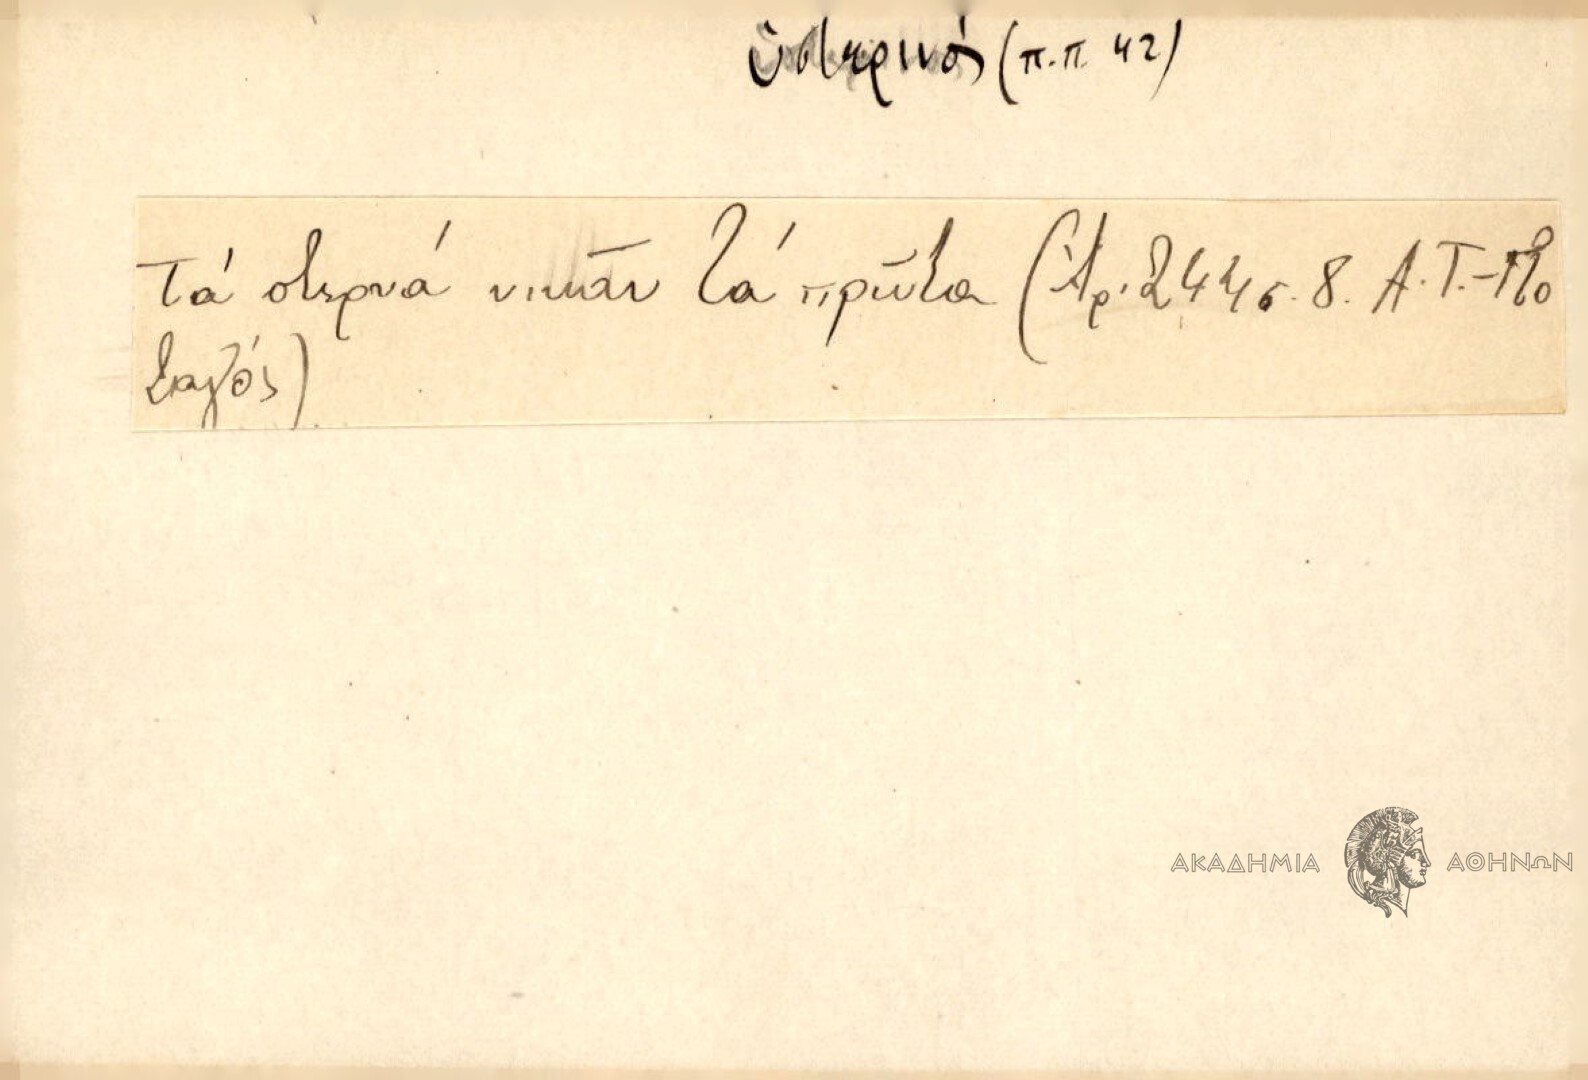 ὑστερινός (π.π. 42)
Τά στερνά νικᾶν τά πρῶτα (Ἀρ. 244 σ. 8. Α.Τ.-
ΑΚΑΔΗΜΙΑ ΑΘΗΝΩΝ